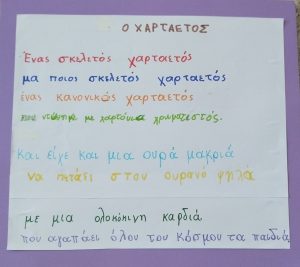 Ο ΧΑΡΤΑΕΤΟΣ
Ένας σκελετός χαρταετός
μα ποιος σκελετός χαρταετός
ένας κανονικός χαρταετός
με χαρτόνια χρωματιστός.
Και είχε και μια ουρά μακριά
να πετάει στον ουρανό ψηλά
με μια ολοκόκινη καρδιά
που αγαπάει όλου του κόσμου τα παιδιά